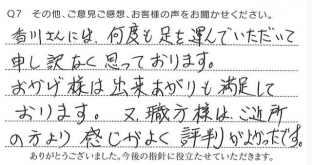 Q7 その他、ご意見ご感想、お客様の声をお聞かせください。
香川さんには、何度も足を運んでいただいて
申し訳なく思っております。
おかげ様は出来あがりも満足して
おります。又、職方様は、ご近所
の方より感じがよく評判がよかったです。
ありがとうございました。今後の指針に役立たせていただきます。